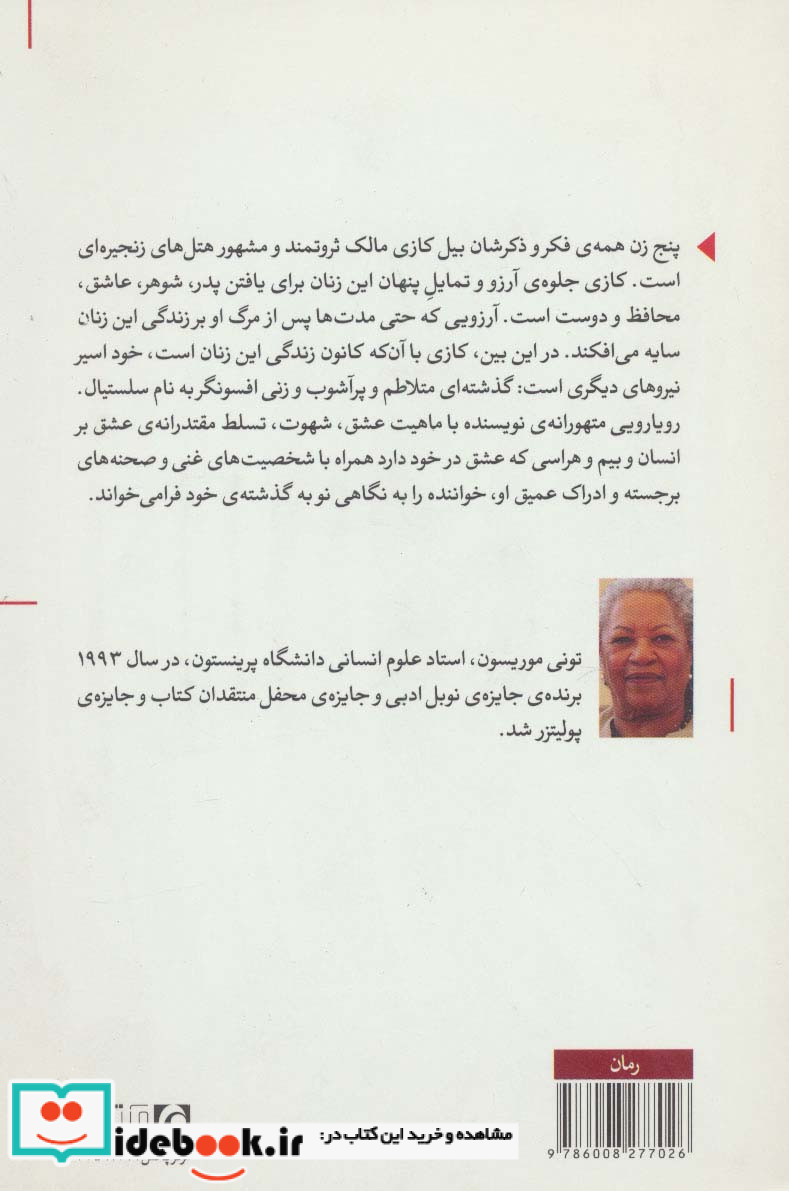 پنج زن همه‌ی فکر و ذکرشان بیل کازی مالک ثروتمند و مشهور هتل‌های زنجیره‌ای
است. کازی جلوه‌ی آرزو و تمایلِ پنهان این زنان برای یافتن پدر، شوهر، عاشق،
محافظ و دوست است. آرزویی که حتی مدت‌ها پس از مرگ او بر زندگی این زنان
سایه می‌افکند. در این بین، کازی با آن‌که کانون زندگی این زنان است، خود اسیر
نیروهای دیگری است: گذشته‌ای متلاطم و پرآشوب و زنی افسونگر به نام سلستیال.
رویارویی متهورانه‌ی نویسنده با ماهیت عشق، شهوت، تسلط مقتدرانه‌ی عشق بر
انسان و بیم و هراسی که عشق در خود دارد همراه با شخصیت‌های غنی و صحنه‌های
برجسته و ادراک عمیق او، خواننده را به نگاهی نو به گذشته‌ی خود فرامی‌خواند.
تونی موریسون، استاد علوم انسانی دانشگاه پرینستون، در سال ۱۹۹۳
برنده‌ی جایزه‌ی نوبل ادبی و جایزه‌ی محفل منتقدان کتاب و جایزه‌ی
پولیتزر شد.
رمان
9 786008 277026
مشاهده و خرید این کتاب در:
idebook.ir